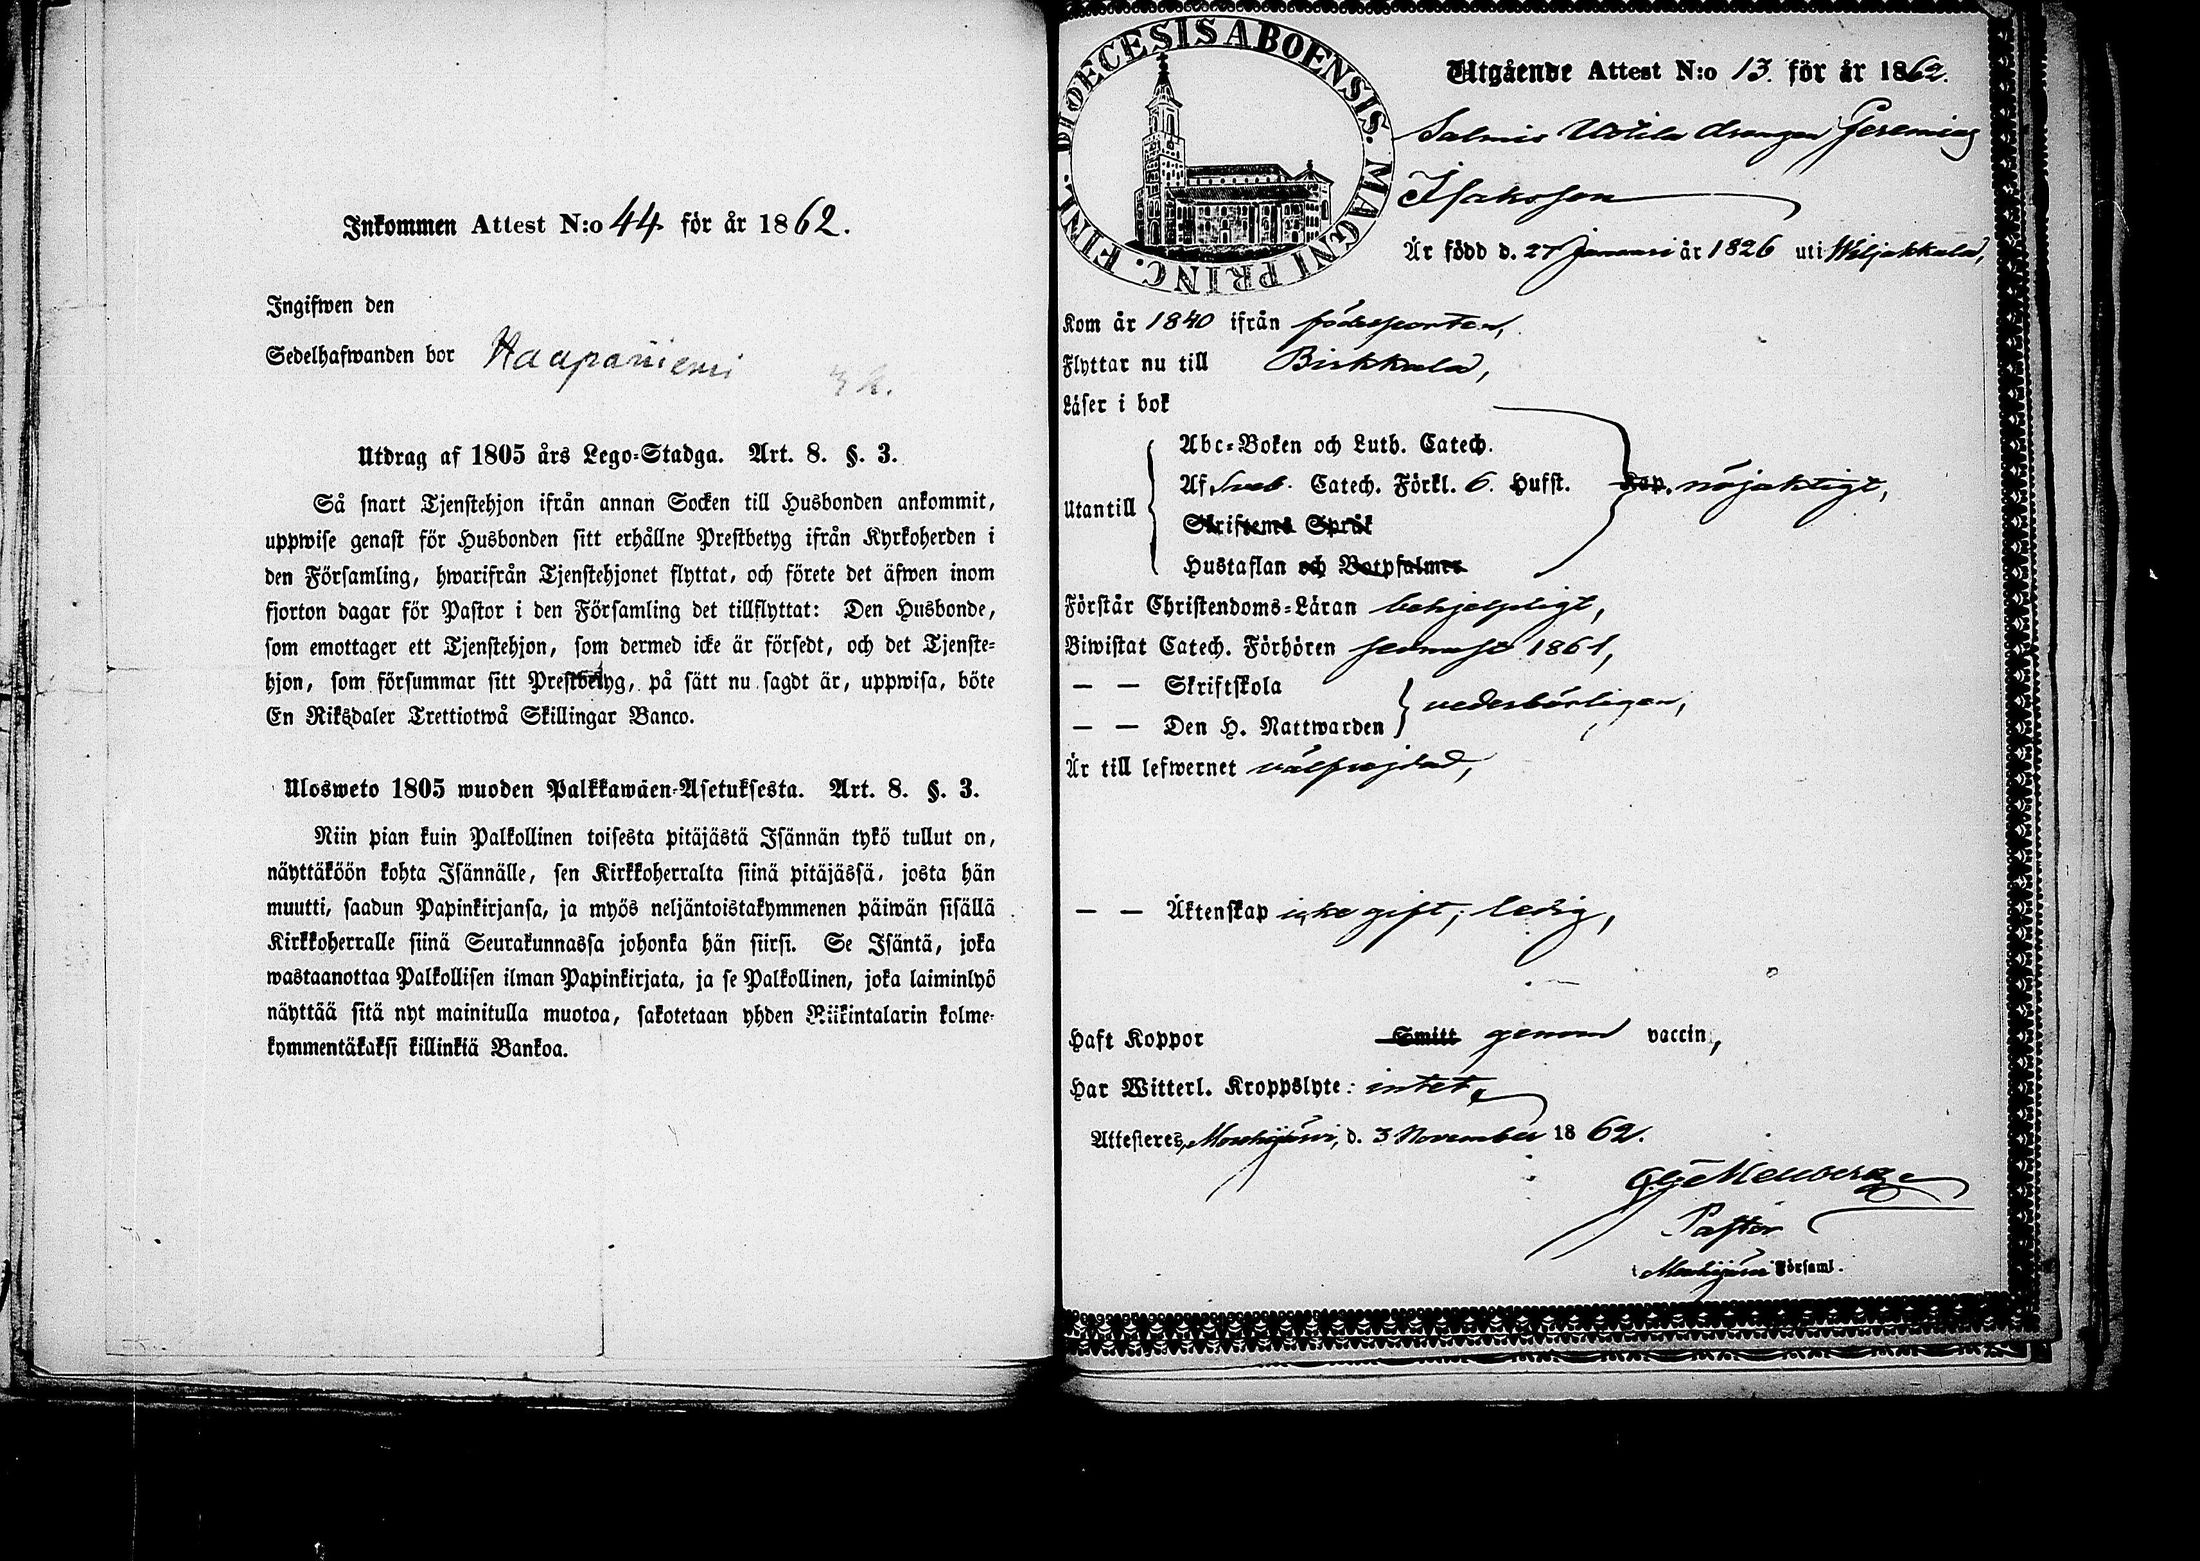 Inkommen Attest N:o 44 för år 1862.
Ingifwen den
Sedelhafwanden bor Haapaniemi
Utdrag af 1805 års Lego-Stadga. Art. 8. §. 3.
Så snart Tjenstehjon ifrån annan Socken till Husbonden ankommit,
uppwise genast för Husbonden sitt erhållne Prestbetyg ifrån Kyrkoherden i
den Församling, hwarifrån Tjenstehjonet flyttat, och förete det äfwen inom
fjorton dagar för Pastor i den Församling det tillflyttat: Den Husbonde,
som emottager ett Tjenstehjon, som dermed icke är försedt, och det Tjenste-
hjon, som försummar sitt Prestbetyg, på sätt nu sagdt är, uppwisa, böte
En Riksdaler Trettiotwå Skillingar Banco.
Ulosweto 1805 wuoden Palkkawäen-Asetuksesta. Art. 8. §. 3.
Niin pian kuin Palkollinen toisesta pitäjästä Isännän tykö tullut on,
näyttäköön kohta Isännälle, sen Kirkkoherralta siinä pitäjässä, josta hän
muutti, saadun Papinkirjansa, ja myös neljäntoistakymmenen päiwän sisällä
Kirkkoherralle siinä Seurakunnassa johonka hän siirsi. Se Isäntä, joka
wastaanottaa Palkollisen ilman Papinkirjata, ja se Palkollinen, joka laiminlyö
näyttää sitä nyt mainitulla muotoa, sakotetaan yhden Riikintalarin kolme-
kymmentäkaksi killinkiä Bankoa.
DIOECESIS ABOENSIS. MAGNI PRINC. FINL.
Utgående Attest N:o 13. för år 1862.
Salmis Uotila drängen Jeremias
Isaksson
Är född d. 27 januari år 1826 uti Wiljakkala,
Kom år 1840 ifrån födesorten,
Flyttar nu till Birkkala,
Läser i bok
Utantill
Abc-Boken och Luth. Catech.
Af Sveb. Catech. Förkl. 6. Hufst. Kap. nöjaktigt,
Skriftens Språk
Hustaflan och Botpsalmer
Förstår Christendoms-Läran behjelpligt,
Biwistat Catech. Förhören senast 1861,
— — Skriftskola
— — Den H. Nattwarden vederbörligen,
Är till lefwernet välfrejdad,
— — Äktenskap icke gift, ledig,
Haft Koppor Smitt genom vaccin,
Har Witterl. Kroppslyte: intet,
Attesteres, Mouhijärvi, d. 3 November 1862.
Pastor
Mouhijärvi Församl.